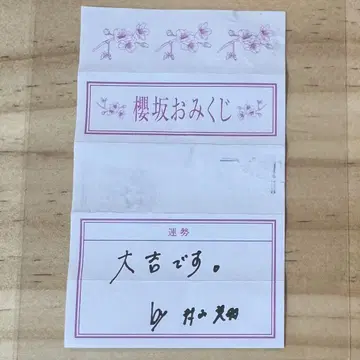 櫻坂おみくじ
運勢
大吉です。
by 村山美羽